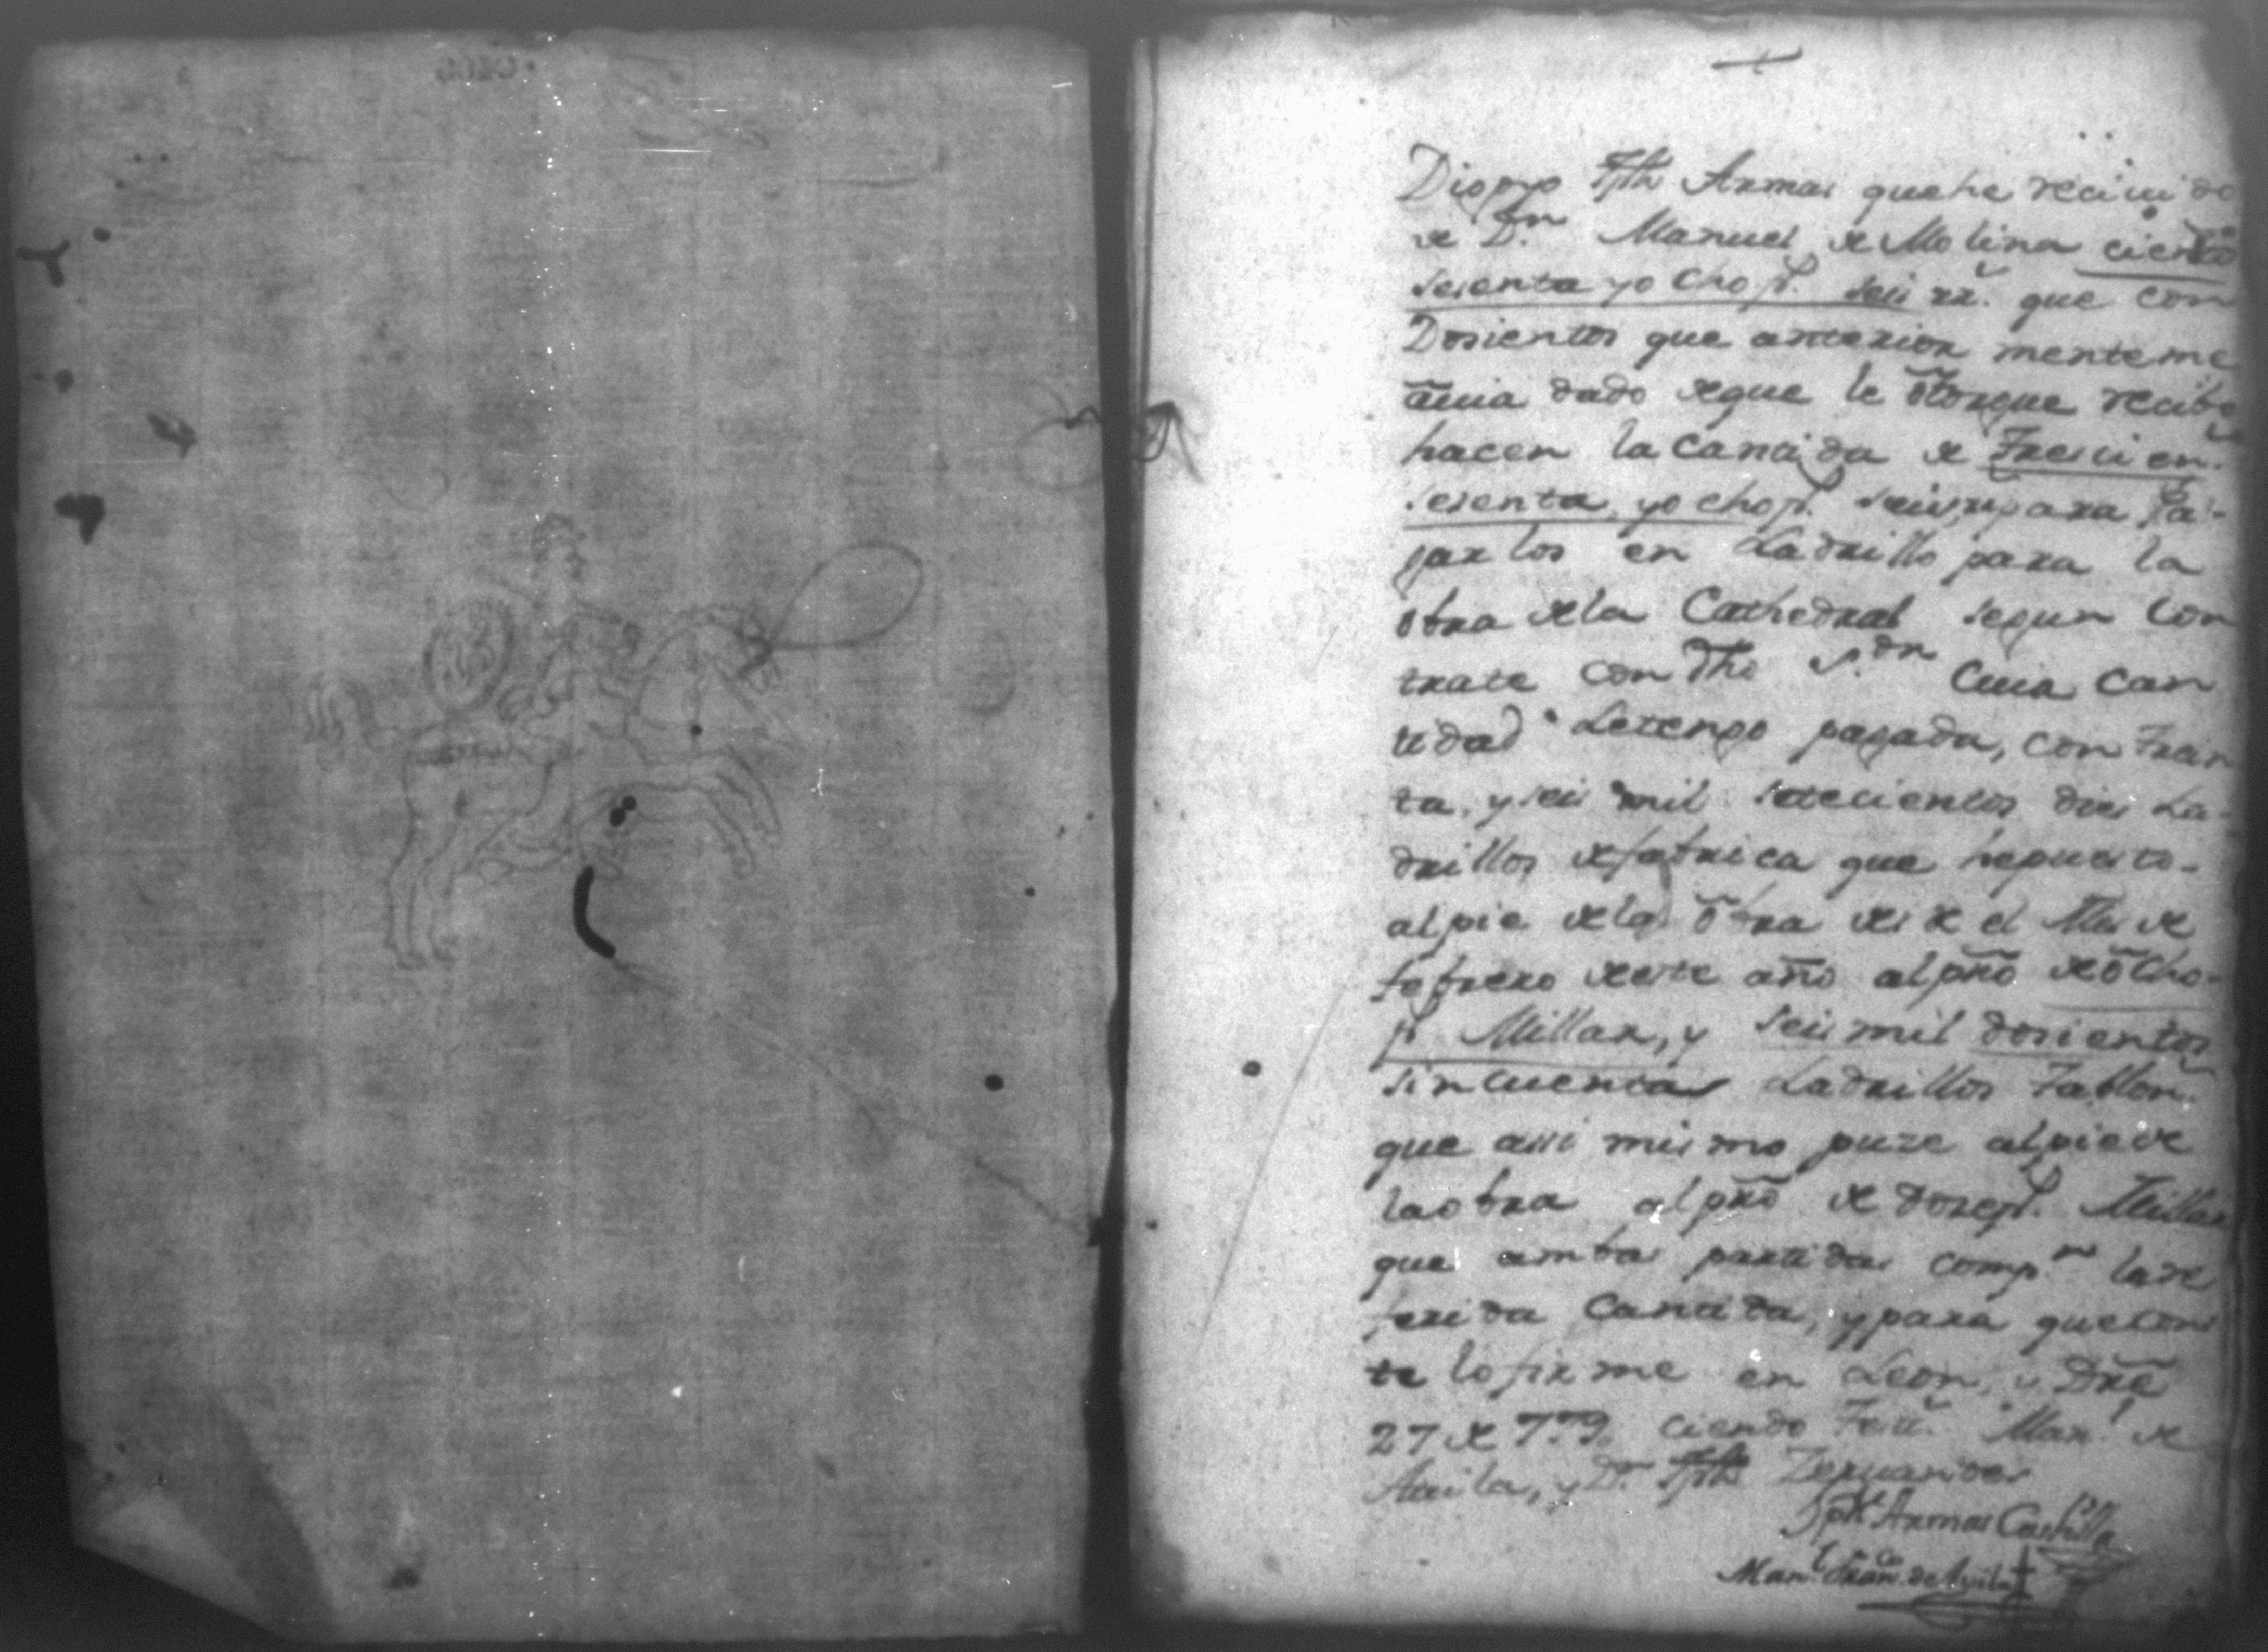 Digo yo Jph Armas que he reciuido
de D.n Manuel de Molina ciento
sesenta y ocho p.s seis rr.s que con
Dosientos que anterior mente me
auia dado de que le otorgue recibo
hacen la cantida de Trescien.s
sesenta, y ocho p.s seis rr.s para pa-
garlos en Ladrillo para la
obra de la Cathedral segun con
trate con dho S.or dn Cuia can
tidad Le tengo pagada, con Trein
ta, y seis mil setecientos dies La-
drillos de fabrica que he puesto-
al pie de la obra desde el Mes de
febrero de este año al prño de ocho-
p.s Millar, y seis mil dosientos
sincuenta Ladrillos Tablon.s
que assi mismo puze al pie de
la obra al prño de dose p.s Millar
que ambas partidas comp.n la re
ferida Cantida, y para que cons
te lo firme en Leon, y
27 de 7.re ciendo Test.s Man.l de
Auila, y D.n Jph
Jph Armas Castilla
Man.l Fran.co de Avila